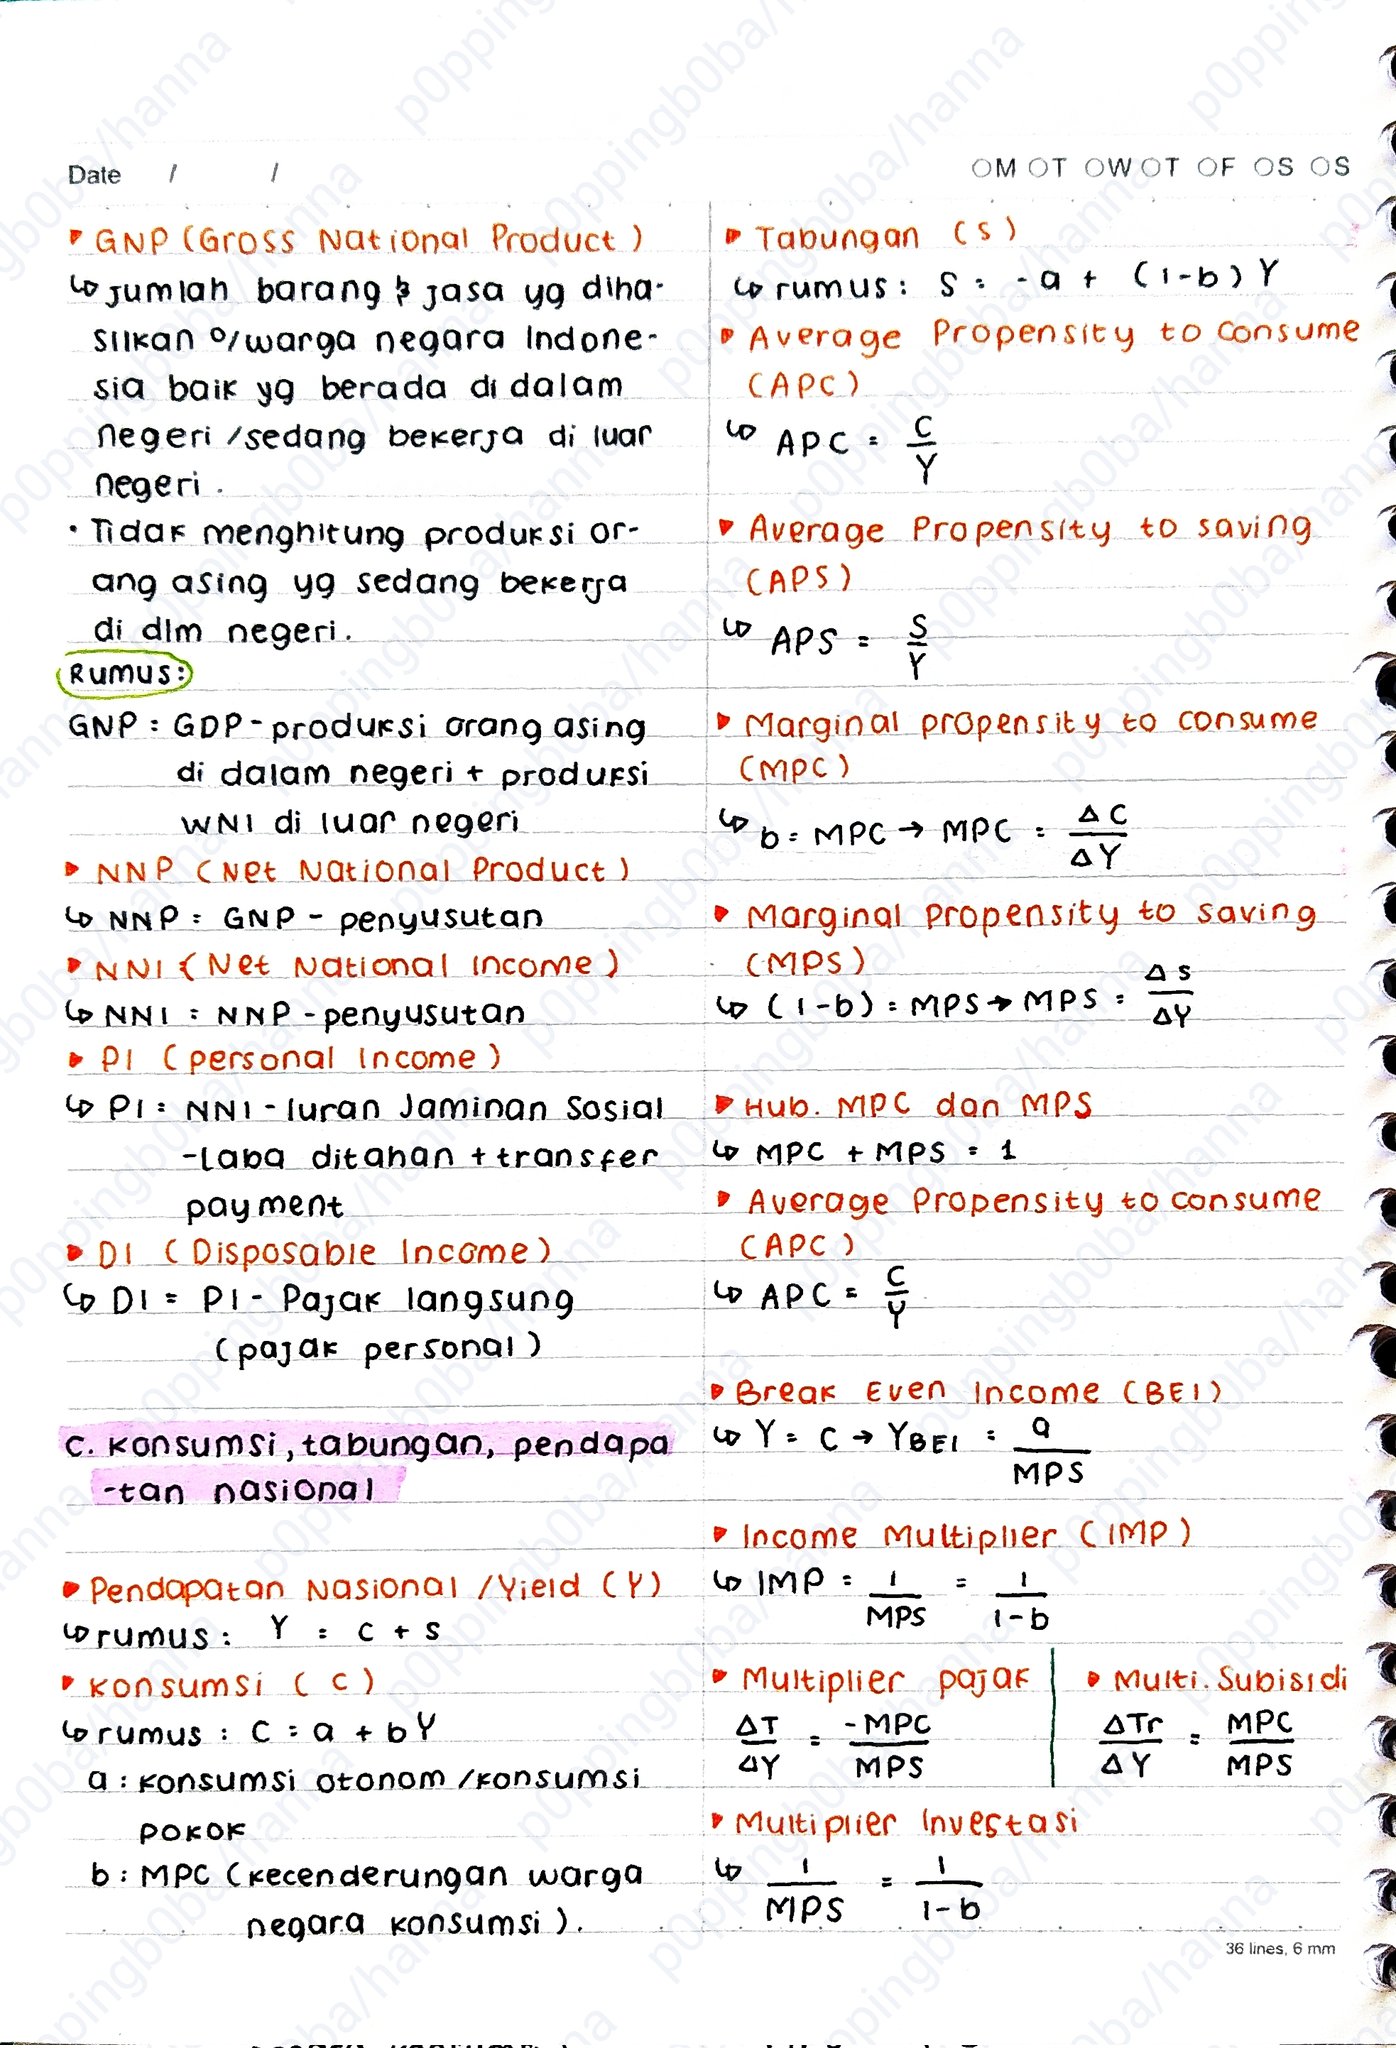 Date / /
OM OT OW OT OF OS OS
GNP (Gross National Product)
↳ jumlah barang & jasa yg diha-
silkan o/warga negara Indone-
sia baik yg berada di dalam
negeri /sedang bekerja di luar
negeri.
• Tidak menghitung produksi or-
ang asing yg sedang bekerja
di dlm negeri.
Rumus:
GNP = GDP - produksi orang asing
di dalam negeri + produksi
WNI di luar negeri
NNP (Net National Product)
↳ NNP = GNP - penyusutan
NNI (Net National Income)
↳ NNI = NNP - penyusutan
PI (personal Income)
↳ PI = NNI - Iuran Jaminan Sosial
- Laba ditahan + transfer
payment
DI (Disposable Income)
↳ DI = PI - Pajak langsung
(pajak personal)
C. Konsumsi, tabungan, pendapa
-tan nasional
Pendapatan Nasional /Yield (Y)
↳ rumus: Y = C + S
Konsumsi (C)
↳ rumus: C = a + bY
a: konsumsi otonom /konsumsi
pokok
b: MPC (kecenderungan warga
negara konsumsi).
Tabungan (S)
↳ rumus: S = -a + (1-b) Y
Average Propensity to consume
(APC)
↳ APC = C/Y
Average Propensity to saving
(APS)
↳ APS = S/Y
Marginal propensity to consume
(MPC)
↳ b = MPC → MPC = ΔC/ΔY
Marginal Propensity to saving
(MPS)
↳ (1-b) = MPS → MPS = ΔS/ΔY
Hub. MPC dan MPS
↳ MPC + MPS = 1
Average Propensity to consume
(APC)
↳ APC = C/Y
Break Even Income (BEI)
↳ Y = C → YBEI = a/MPS
Income Multiplier (IMP)
↳ IMP = 1/MPS = 1/1-b
Multiplier pajak
ΔT/ΔY = -MPC/MPS
Multi. Subisidi
ΔTr/ΔY = MPC/MPS
Multiplier Investasi
↳ 1/MPS = 1/1-b
36 lines, 6 mm
p0ppingb0ba/hanna